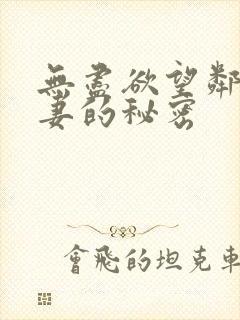 無盡欲望鄰
妻的秘密
會飛的坦克車